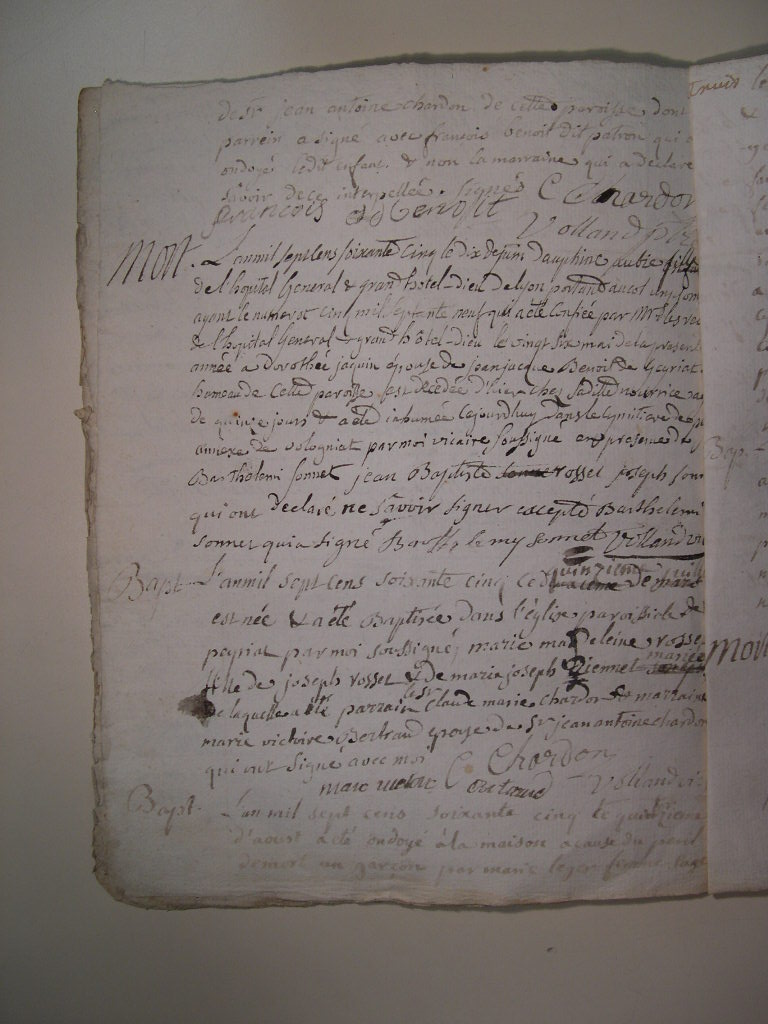 de sr jean antoine chardon de cette paroisse dont
parrein a signé avec francois benoit dit patron qui a
ondoyé ledit enfant & non la marraine qui a declaré
savoir de ce interpellée. signés C Chardon
francois Benoit
Volland ptre
Mort. L'anmil sept cens soixante cinq le dix de juin dauphine aubie fille
de l'hopital General & grand hotel-dieu de lyon portant au col un
ayant le numerot cinq mil septante neuf qui a été confiée par Mrs les rec
de l'hopital General & grand hôtel-dieu le vingt six mai de la present
année a Dorothée jaquin épouse de jean jacque Benoit de Geyriat
hameau de cette paroisse est decedée d'hier chez sa dite nourrice ag
de quinze jours & a été inhumée cejourdhuy dans le cymitiere de
annexe de volognat par moi vicaire soussigné en presence de
Barthélemi sonnet jean Baptiste rosset joseph son
qui ont declaré ne savoir signer excepté Barthelemi
sonnet qui a signé Barthelemy sonnet Volland vic
Bapt. L'anmil sept cens soixante cinq le quinzieme
est née & a été Baptisée dans l'église paroissiale de
peyriat par moi soussigné, marie madeleine rosset
fille de joseph rosset & de marie joseph mariés
de laquelle a été parrain sr Claude marie chardon & marraine
marie victoire Bertraud epouse de Sr jean antoine chardon
qui ont signé avec moi
C Chardon
Volland vic
Bapt. L'an mil sept cens soixante cinq le quinzieme
d'aoust a été ondoyé à la maison a cause du peril
de mort un garçon par marie femme sage
truds le
Bap.
Mort